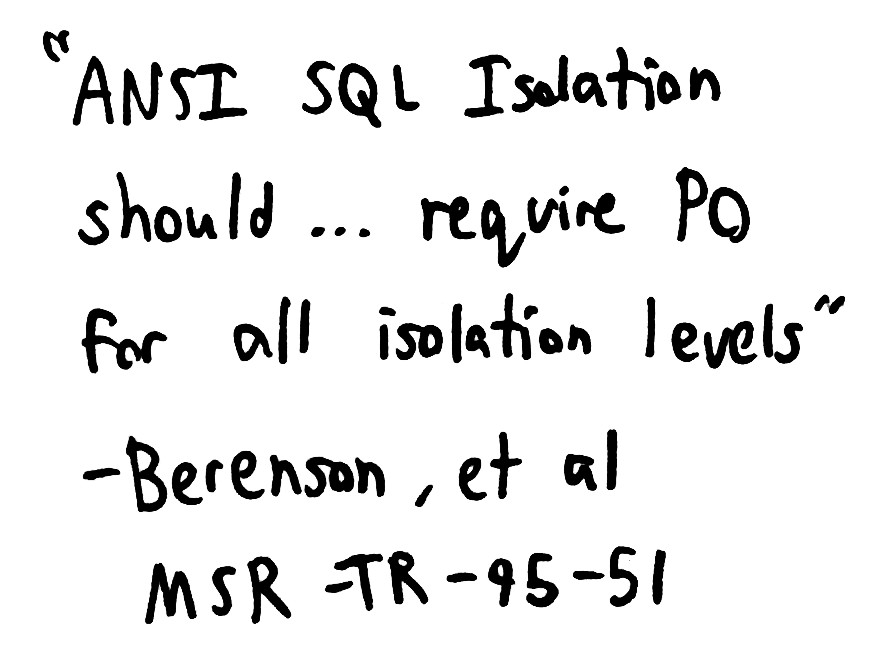 "ANSI SQL Isolation
should ... require PO
for all isolation levels"
- Berenson, et al
MSR-TR-95-51